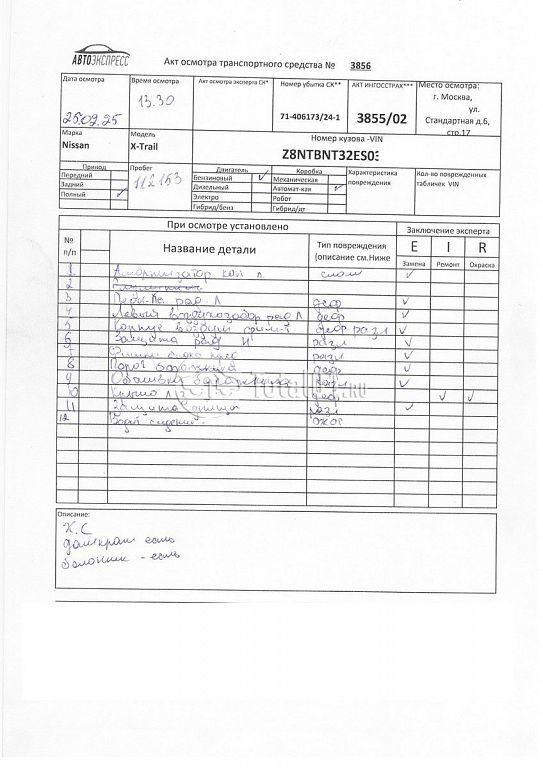 АВТОЭКСПРЕСС
Акт осмотра транспортного средства № 3856
Дата осмотра
25.02.25
Время осмотра
13.30
Акт осмотра эксперта СК*
Номер убытка СК**
71-406173/24-1
АКТ ИНГОССТРАХ***
3855/02
Место осмотра:
г. Москва,
ул.
Стандартная д.6,
стр.17
Марка
Nissan
Модель
X-Trail
Номер кузова -VIN
Z8NTBNT32ES03
Привод
Передний
Задний
Полный ✓
Пробег
112153
Двигатель
Бензиновый ✓
Дизельный
Электро
Гибрид/бенз
Коробка
Механическая
Автомат-кая ✓
Робот
Гибрид/дт
Характеристика
повреждения
Кол-во поврежденных
табличек VIN
При осмотре установлено
Заключение эксперта
№
п/п
Название детали
Тип повреждения
(описание см.Ниже
E I R
Замена Ремонт Окраска
1 Амортизатор кап л слом ✓
2
3 рад Л деф ✓
4 Левый воздухозабор рад Л деф ✓
5 Корпус дефразл ✓
6 Защита разл ✓
7 разл ✓
8 Порог деф ✓
9 Обшивка багажника разл ✓
10 Крыло л деф ✓ ✓
11 Защита днища разл ✓
12
Total .RU
Описание:
К.С
домкрат есть
балонник - есть